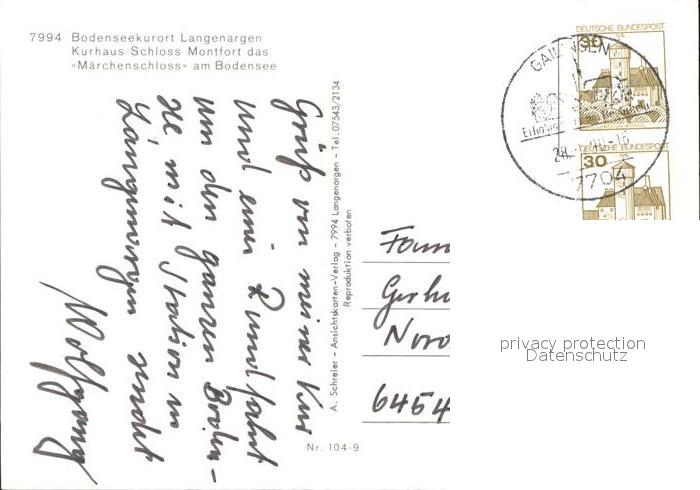 7994 Bodenseekurort Langenargen
Kurhaus Schloss Montfort das
«Märchenschloss» am Bodensee
Gruß von meiner Kur
und einer Rundfahrt
um den ganzen Boden-
see mit Station in
Langenargen sendet
Wolfgang
A. Schreier – Ansichtskarten-Verlag – 7994 Langenargen – Tel. 07543/2134
Reproduktion verboten
Nr. 104-9
DEUTSCHE BUNDESPOST
30
GAILINGEN
7704
DEUTSCHE BUNDESPOST
30
Fam
Gerh
Nord
6454
privacy protection
Datenschutz